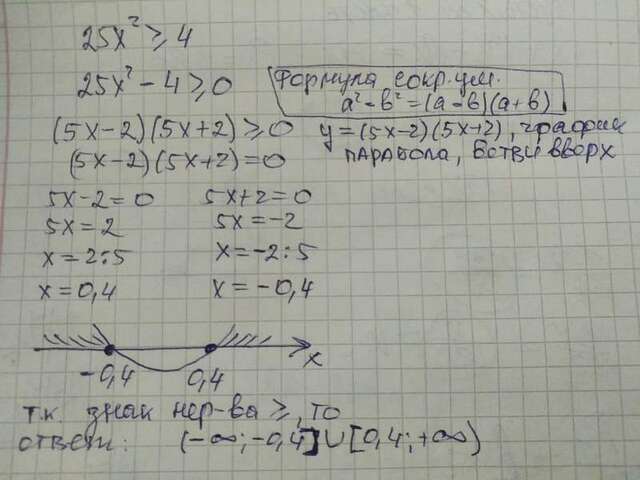 25x² ≥ 4
25x² - 4 ≥ 0
Формула сокр. умн.
a² - b² = (a - b)(a + b)
(5x - 2)(5x + 2) ≥ 0
y = (5x-2)(5x+2), график
парабола, ветви вверх
(5x - 2)(5x + 2) = 0
5x - 2 = 0
5x = 2
x = 2:5
x = 0,4
5x + 2 = 0
5x = -2
x = -2:5
x = -0,4
-0,4 0,4 x
т.к. знак нер-ва ≥, то
ответ: (-∞; -0,4] ∪ [0,4; +∞)